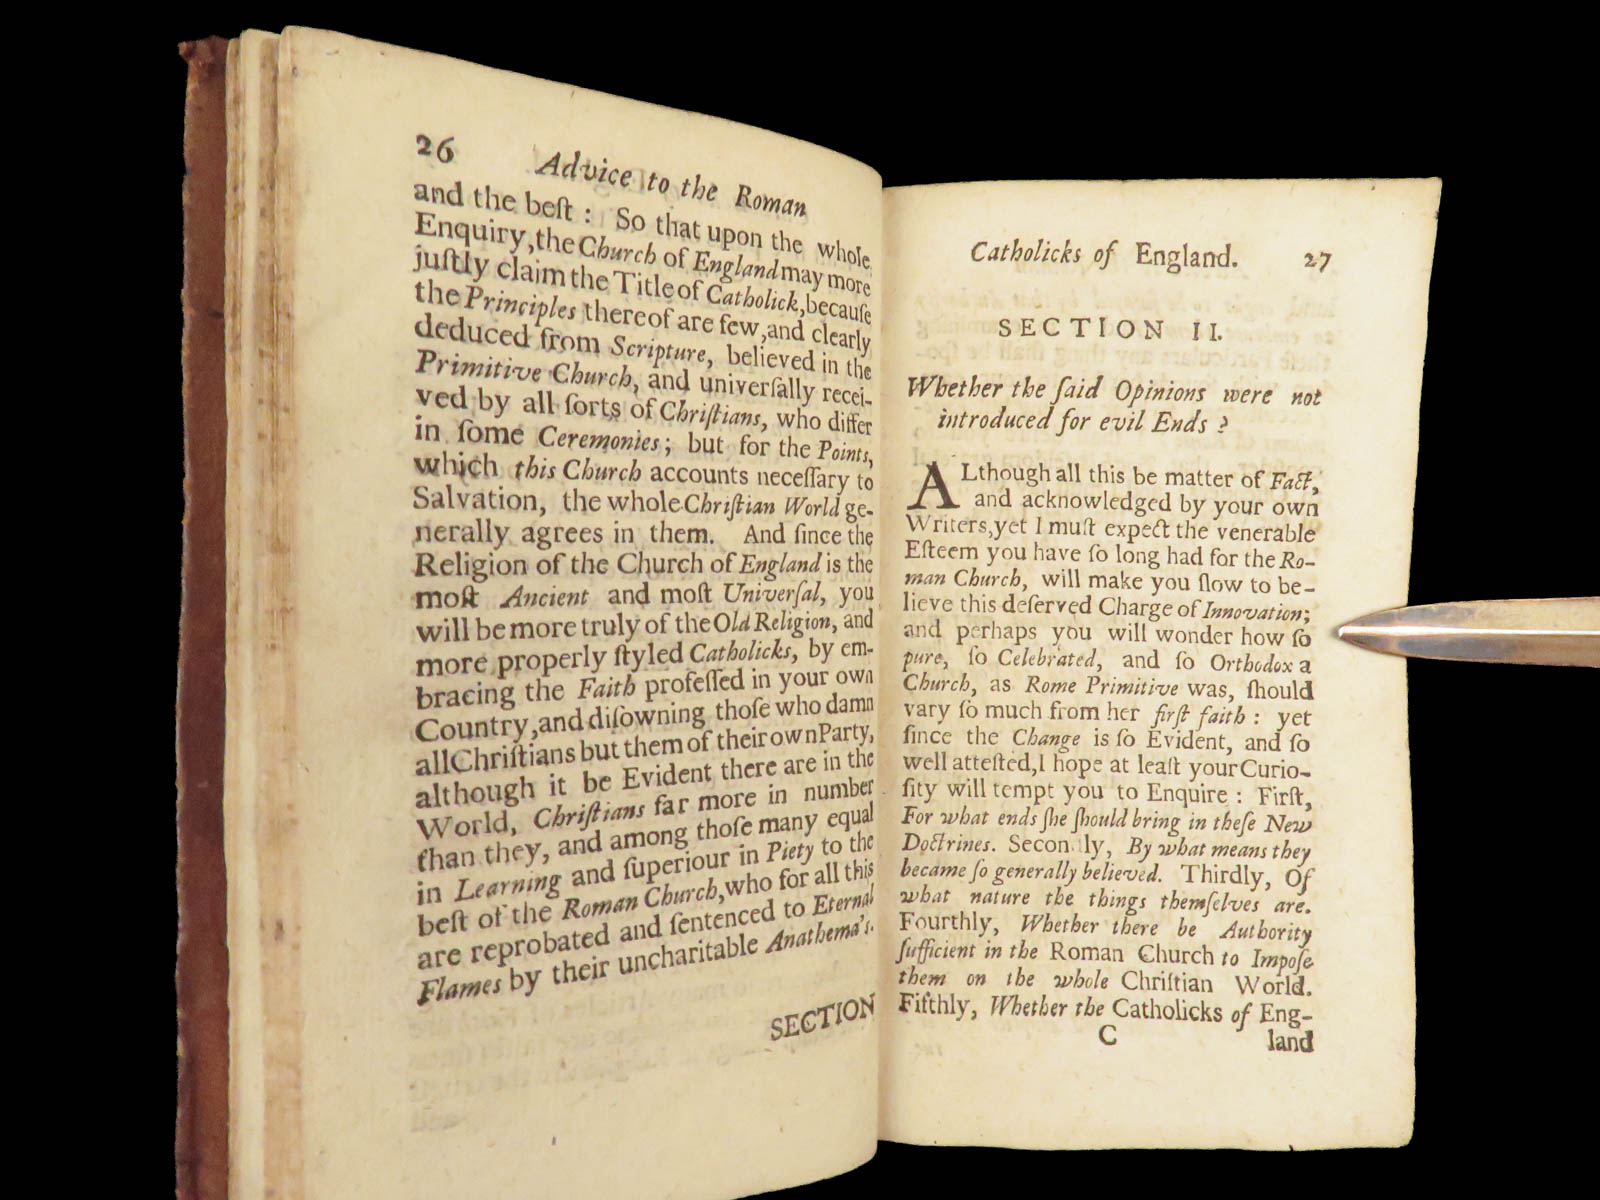 26
Advice to the Roman
and the beſt : So that upon the whole
Enquiry, the Church of England may more
juſtly claim the Title of Catholick, becauſe
the Principles thereof are few, and clearly
deduced from Scripture, believed in the
Primitive Church, and univerſally recei-
ved by all ſorts of Chriſtians, who differ
in ſome Ceremonies; but for the Points,
which this Church accounts neceſſary to
Salvation, the whole Chriſtian World ge-
nerally agrees in them. And ſince the
Religion of the Church of England is the
moſt Ancient and moſt Univerſal, you
will be more truly of the Old Religion, and
more properly ſtyled Catholicks, by em-
bracing the Faith profeſſed in your own
Country, and diſowning thoſe who damn
all Chriſtians but them of their own Party,
although it be Evident there are in the
World, Chriſtians far more in number
than they, and among thoſe many equal
in Learning and ſuperiour in Piety to the
beſt of the Roman Church, who for all this
are reprobated and ſentenced to Eternal
Flames by their uncharitable Anathema's.
SECTION
Catholicks of England. 27
SECTION II.
Whether the ſaid Opinions were not
introduced for evil Ends ?
ALthough all this be matter of Fact,
and acknowledged by your own
Writers, yet I muſt expect the venerable
Eſteem you have ſo long had for the Ro-
man Church, will make you ſlow to be-
lieve this deſerved Charge of Innovation;
and perhaps you will wonder how ſo
pure, ſo Celebrated, and ſo Orthodox a
Church, as Rome Primitive was, ſhould
vary ſo much from her firſt faith : yet
ſince the Change is ſo Evident, and ſo
well atteſted, I hope at leaſt your Curio-
ſity will tempt you to Enquire : Firſt,
For what ends ſhe ſhould bring in theſe New
Doctrines. Secondly, By what means they
became ſo generally believed. Thirdly, Of
what nature the things themſelves are.
Fourthly, Whether there be Authority
ſufficient in the Roman Church to Impoſe
them on the whole Chriſtian World.
Fifthly, Whether the Catholicks of Eng-
C land